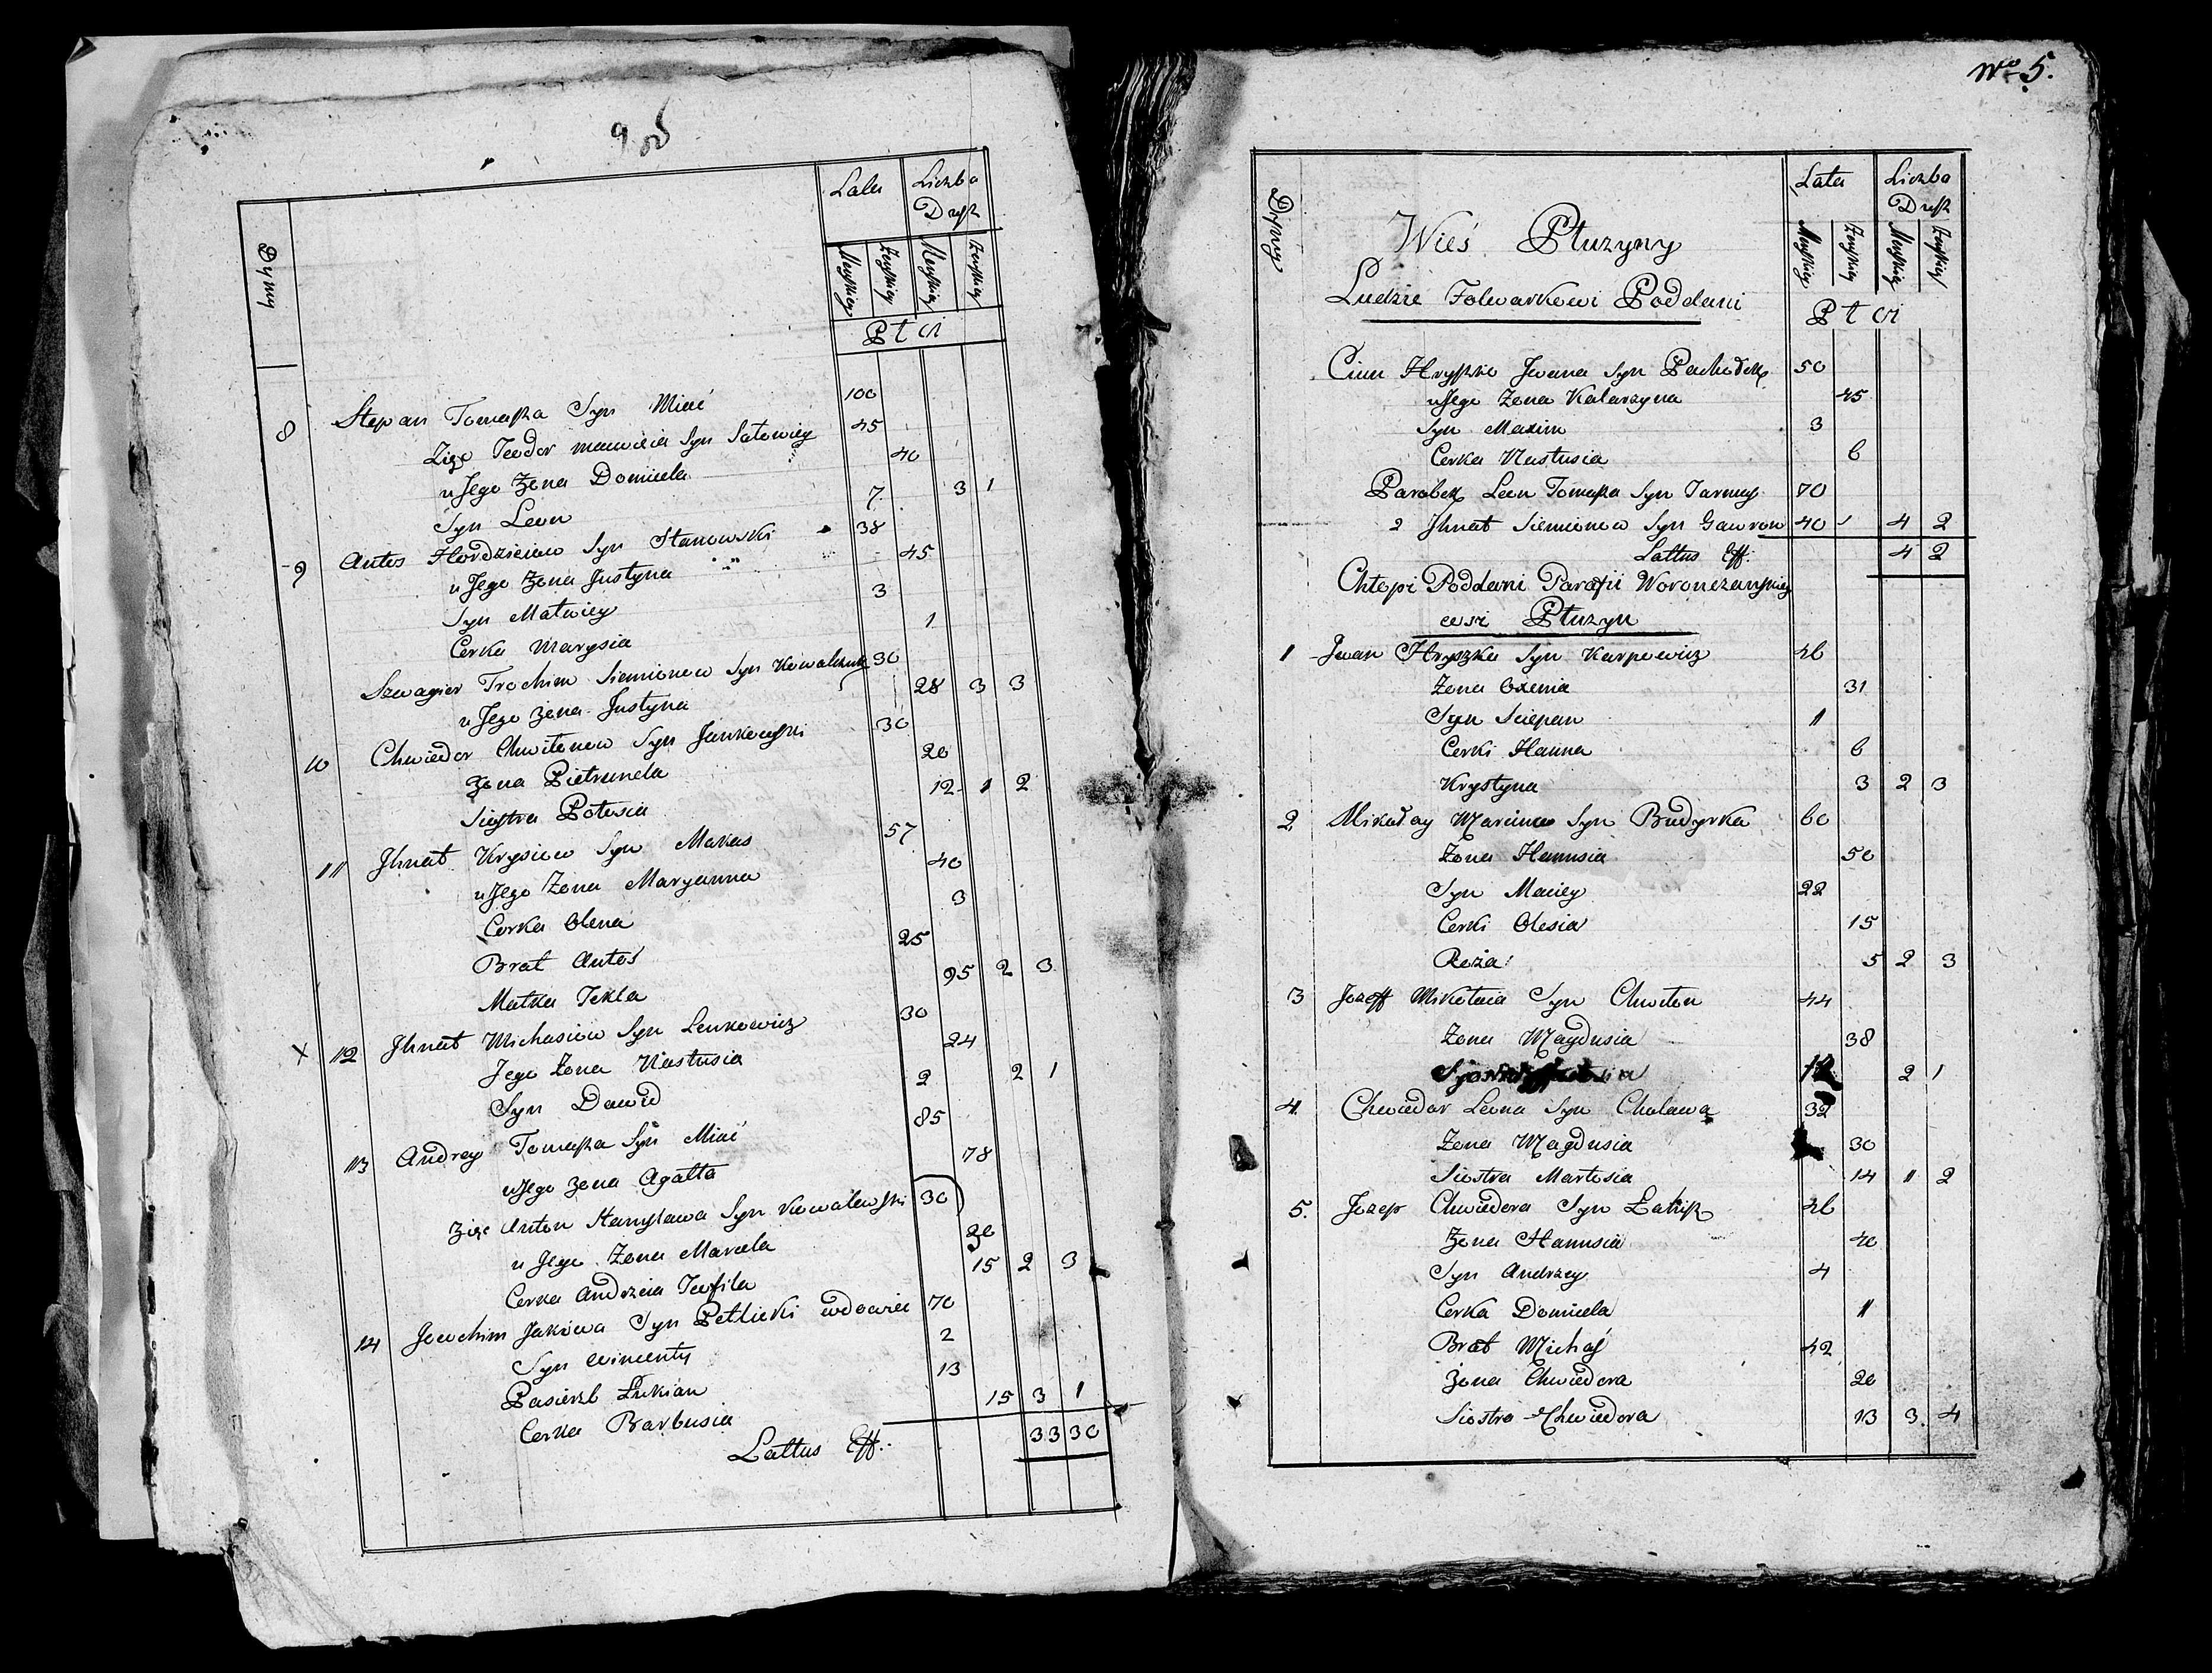 9
Dymy Lata Liczba Dusz
Męskiey Żeńskiey Męskiey Żeńskiey
Płci
8 Stepan Tomasza Syn Miać 100
Zięć Teodor Syn 45
u Jego Żona Domicela 40
Syn Leon 7 3 1
9 Antoś Hordzieiew Syn Stanowski 38
u Jego Żona Justyna 45
Syn Matwiey 3
Cerka Marysia 1
Szwagier Trochim Siemionow Syn Kowalczuk 30
u Jego żena Justyna 28 3 3
10 Chwiedor Chwitonow Syn Jankowski 30
Żona Pietrunela 20
Siostra Polusia 12 1 2
11 Jhnat Krysiew Syn Makas 57
u Jego Żena Maryanna 40
Cerka Olena 3
Brat Antoś 25
Matka Tekla 95 2 3
x 12 Jhnat Michasiow Syn Lenkowicz 30
Jego Żena Nastusia 24
Syn Dawid 2 2 1
13 Andrey Tomasza Syn Miać 85
u Jego żena Agatta 78
Zięć Anton Stanisława Syn Kowalewski 30
u Jego Żena Marcela 20
Cerka Andrzeia Teofila 15 2 3
14 Joachim Jakowa Syn Petlicki wdowiec 70
Syn Wincenty 2
Pasierzb Łukian 13
Cerka Barbusia 15 3 1
Lattus Eff: 33 30
No 5.
Dymy Lata Liczba Dusz
Męskiey Żeńskiey Męskiey Żeńskiey
Wieś Płużyny
Ludzie Folwarkowi Poddani
Płci
Ciwun Hryszko Jwana Syn 50
u Jego Żena Katarzyna 45
Syn Maxim 3
Cerka Nastusia 6
Parobek Leon Tomasza Syn Jarmuş 70
2 Jhnat Siemionow Syn Gawron 40 4 2
Lattus Eff: 4 2
Chłopi Poddani Parafii Woronczanskiey
wsi Płużyn
1 Jwan Hryszka Syn Karpowicz 46
Żena Oxenia 31
Syn Sciepan 1
Cerki Hanna 6
Krystyna 3 2 3
2 Mikołay Marcina Syn Budyrka 60
Żona Hanusia 50
Syn Maciey 22
Cerki Olesia 15
Roża 5 2 3
3 Jozeff Mikołaia Syn Chwiton 44
Żena Magdusia 38
2 1
4 Chwiedor Leona Syn Cholawa 32
Żena Magdusia 30
Siostra Martosia 14 1 2
5. Jozep Chwiedora Syn 46
Żena Hanusia 40
Syn Andrzey 4
Cerka Domicela 1
Brat Michaś 42
Żena Chwiedora 20
Siostra Chwiedora 13 3. 4